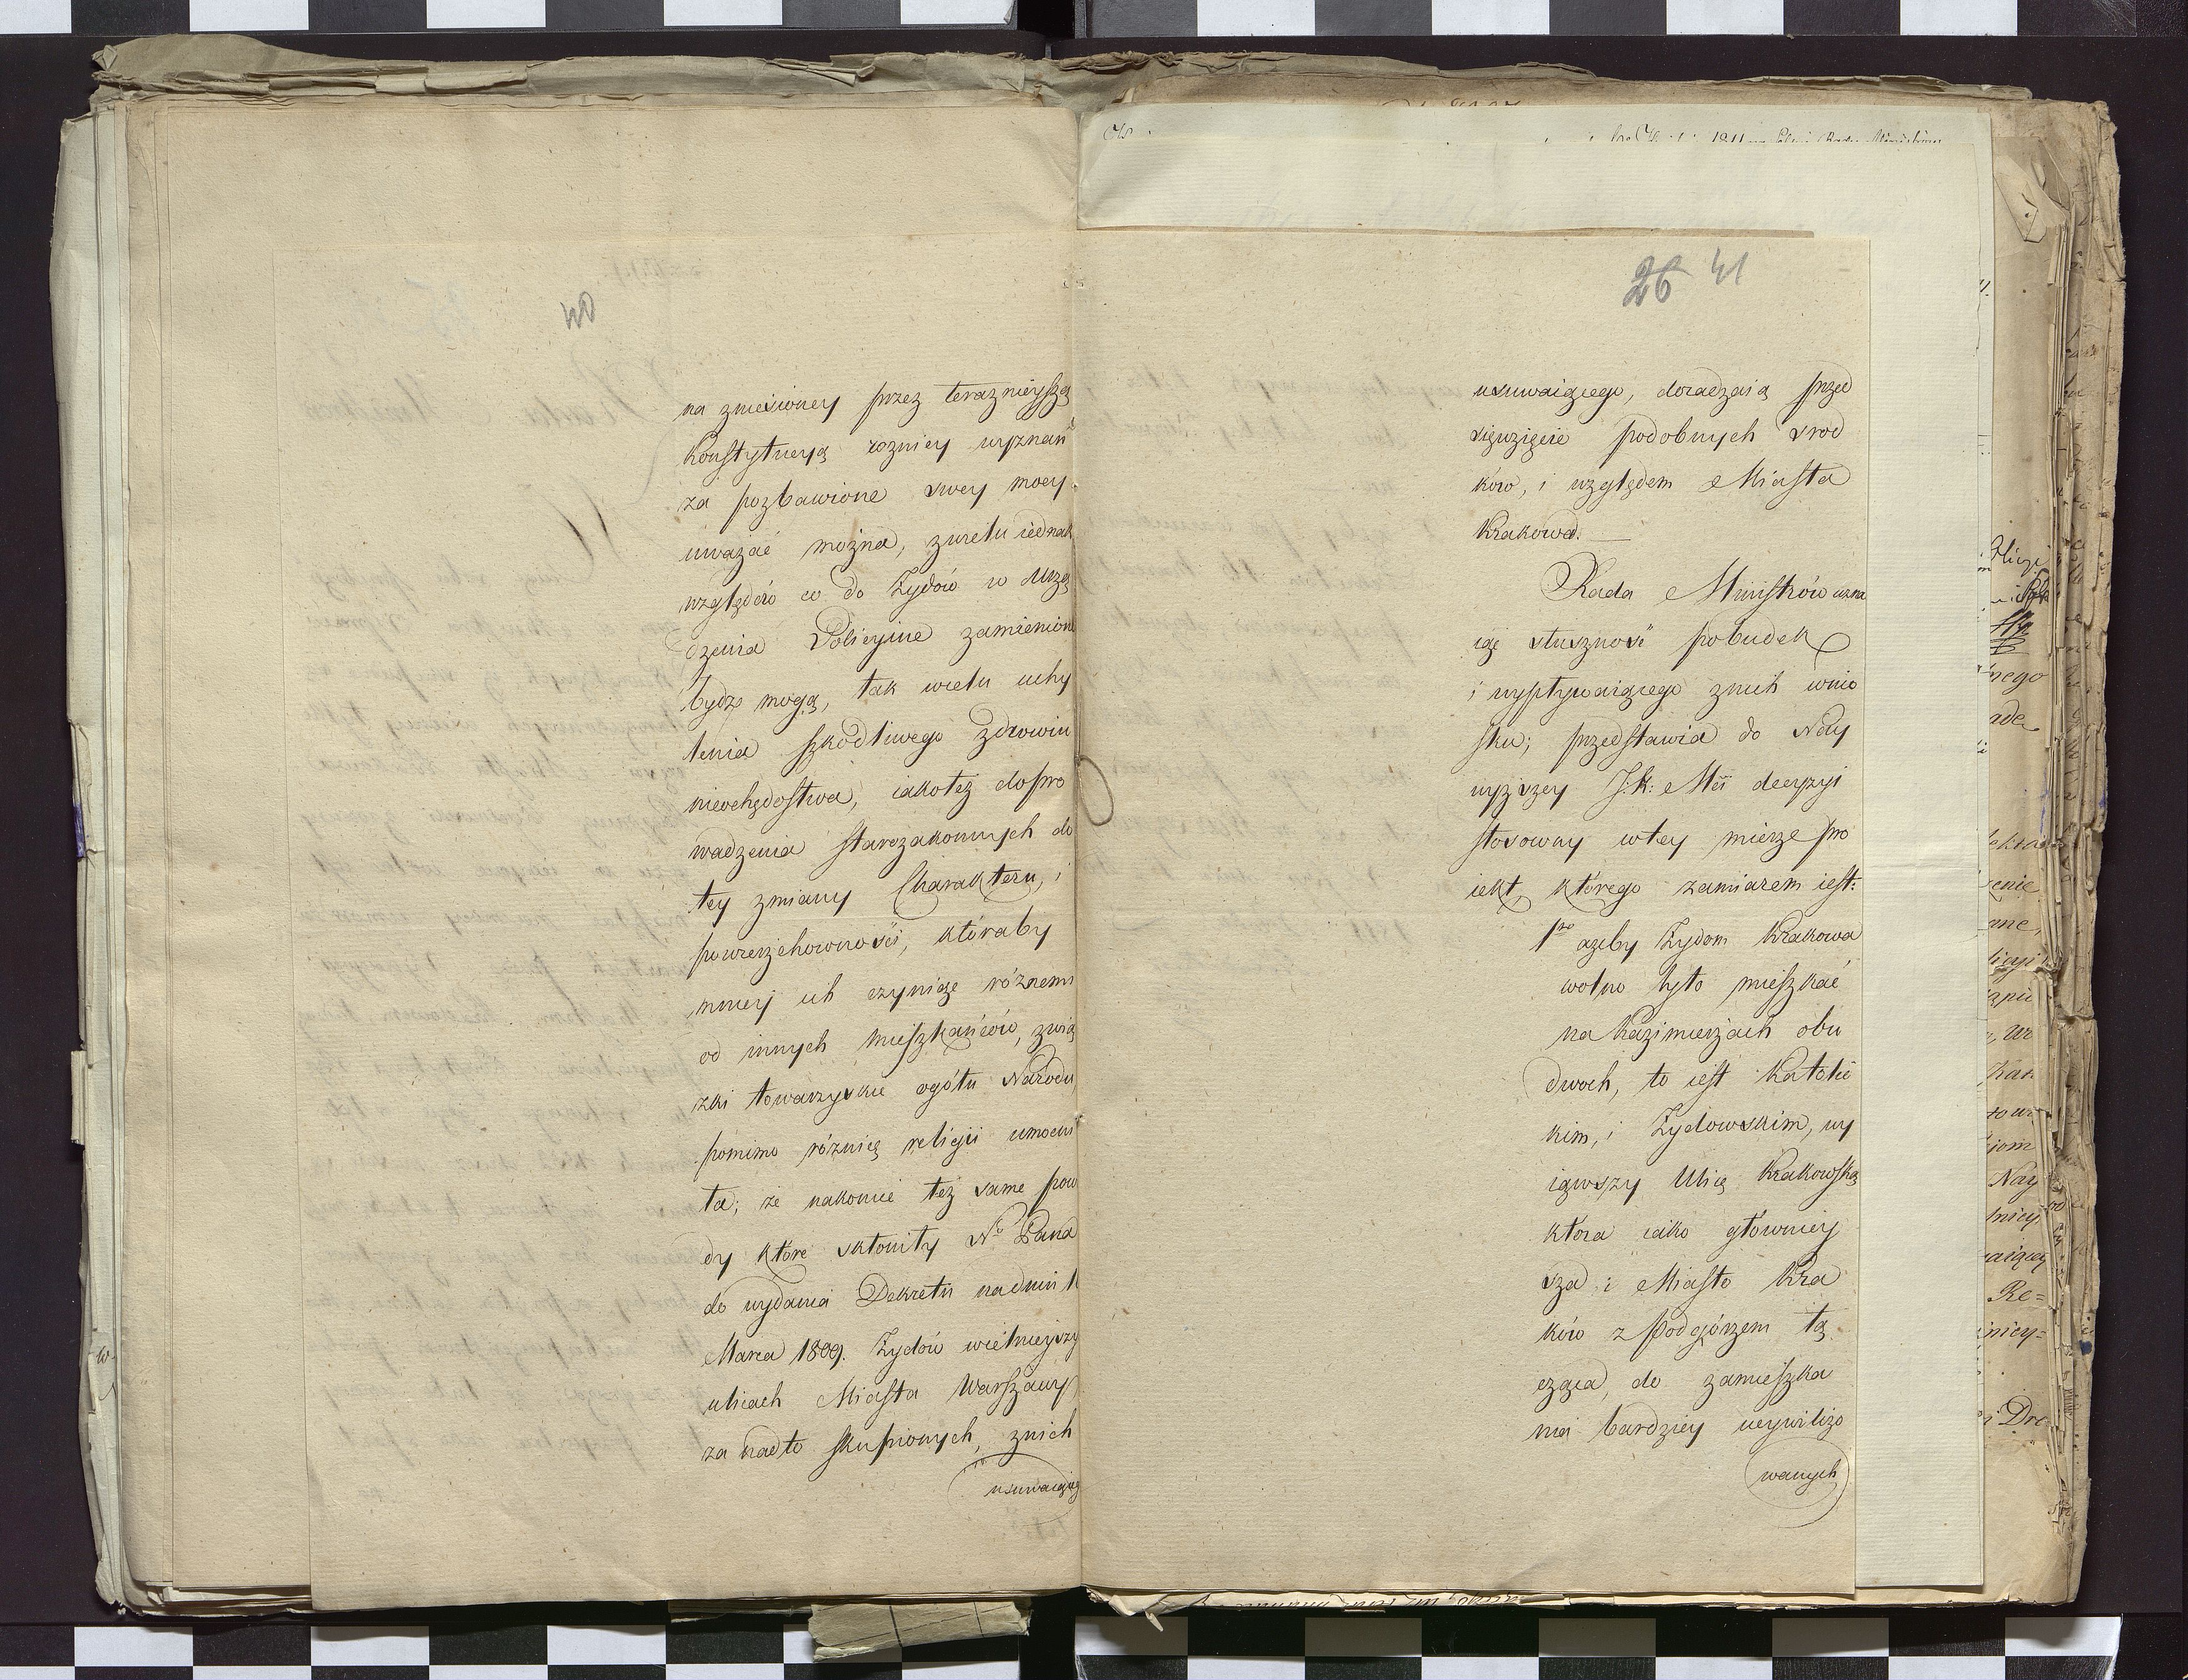 40
na zniesioney przez teraznieyszą
Konstytucyą rożnicy wyznań
za pozbawione swey mocy
uważać można, z wielu iednak
względów co do Żydów w Urzą
dzenia Policyine zamienione
bydź mogą, tak wielu uchy
lenia szkodliwego zdrowiu
nieochędostwa, iakoteż dopro
wadzenia starozakonnych do
tey zmiany Charakteru, i
powierzchowności, któraby
mniey ich czyniąc różnemi
od innych mieszkańców, zwią
zki towarzyskie ogółu Narodu,
pomimo różnicę religii umocni
ła; że nakoniec też same powo
dy które skłoniły Nº Pana
do wydania Dekretu na dniu
Marca 1809. Żydów wcelnieyszy
ulicach Miasta Warszawy
za nadto skupionych, znich
usuwaiąceg
26 41
usuwaiącego, doradzaią przed
sięwzięcie podobnych srod
ków, i względem Miasta
Krakowa.
Rada Ministrów uzna
iąc słuszność pobudek
i wypływaiącego znich wnio
sku; przedstawia do Nay
wyższey J: K: Mci decyzyi
stosowny wtey mierze pro
iekt, którego zamiarem iest:
1mo ażeby Żydom Krakowa
wolno było mieszkać
na Kazimierzach obu
dwoch, to iest Katolic
kim, i Żydowskim, wy
iąwszy Ulicę Krakowską
ktora iako głowniey
sza i Miasto Kra
ków z Podgórzem łą
cząca, do zamieszka
nia bardziey ucywilizo
wanych